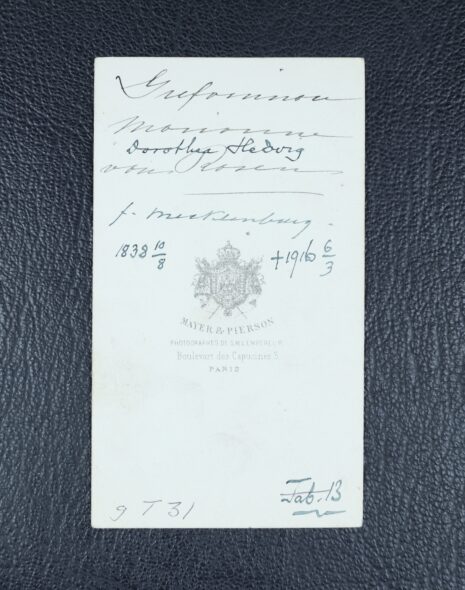 Grefvinnan
Marianne
Dorothea Hedvig
von Rosen
f. Mecklenburg.
1838 10/8
+1916 6/3
MAYER & PIERSON
PHOTOGRAPHES DE S.M. L'EMPEREUR
Boulevart des Capucines 3
PARIS
Tab. 13
9 T 31